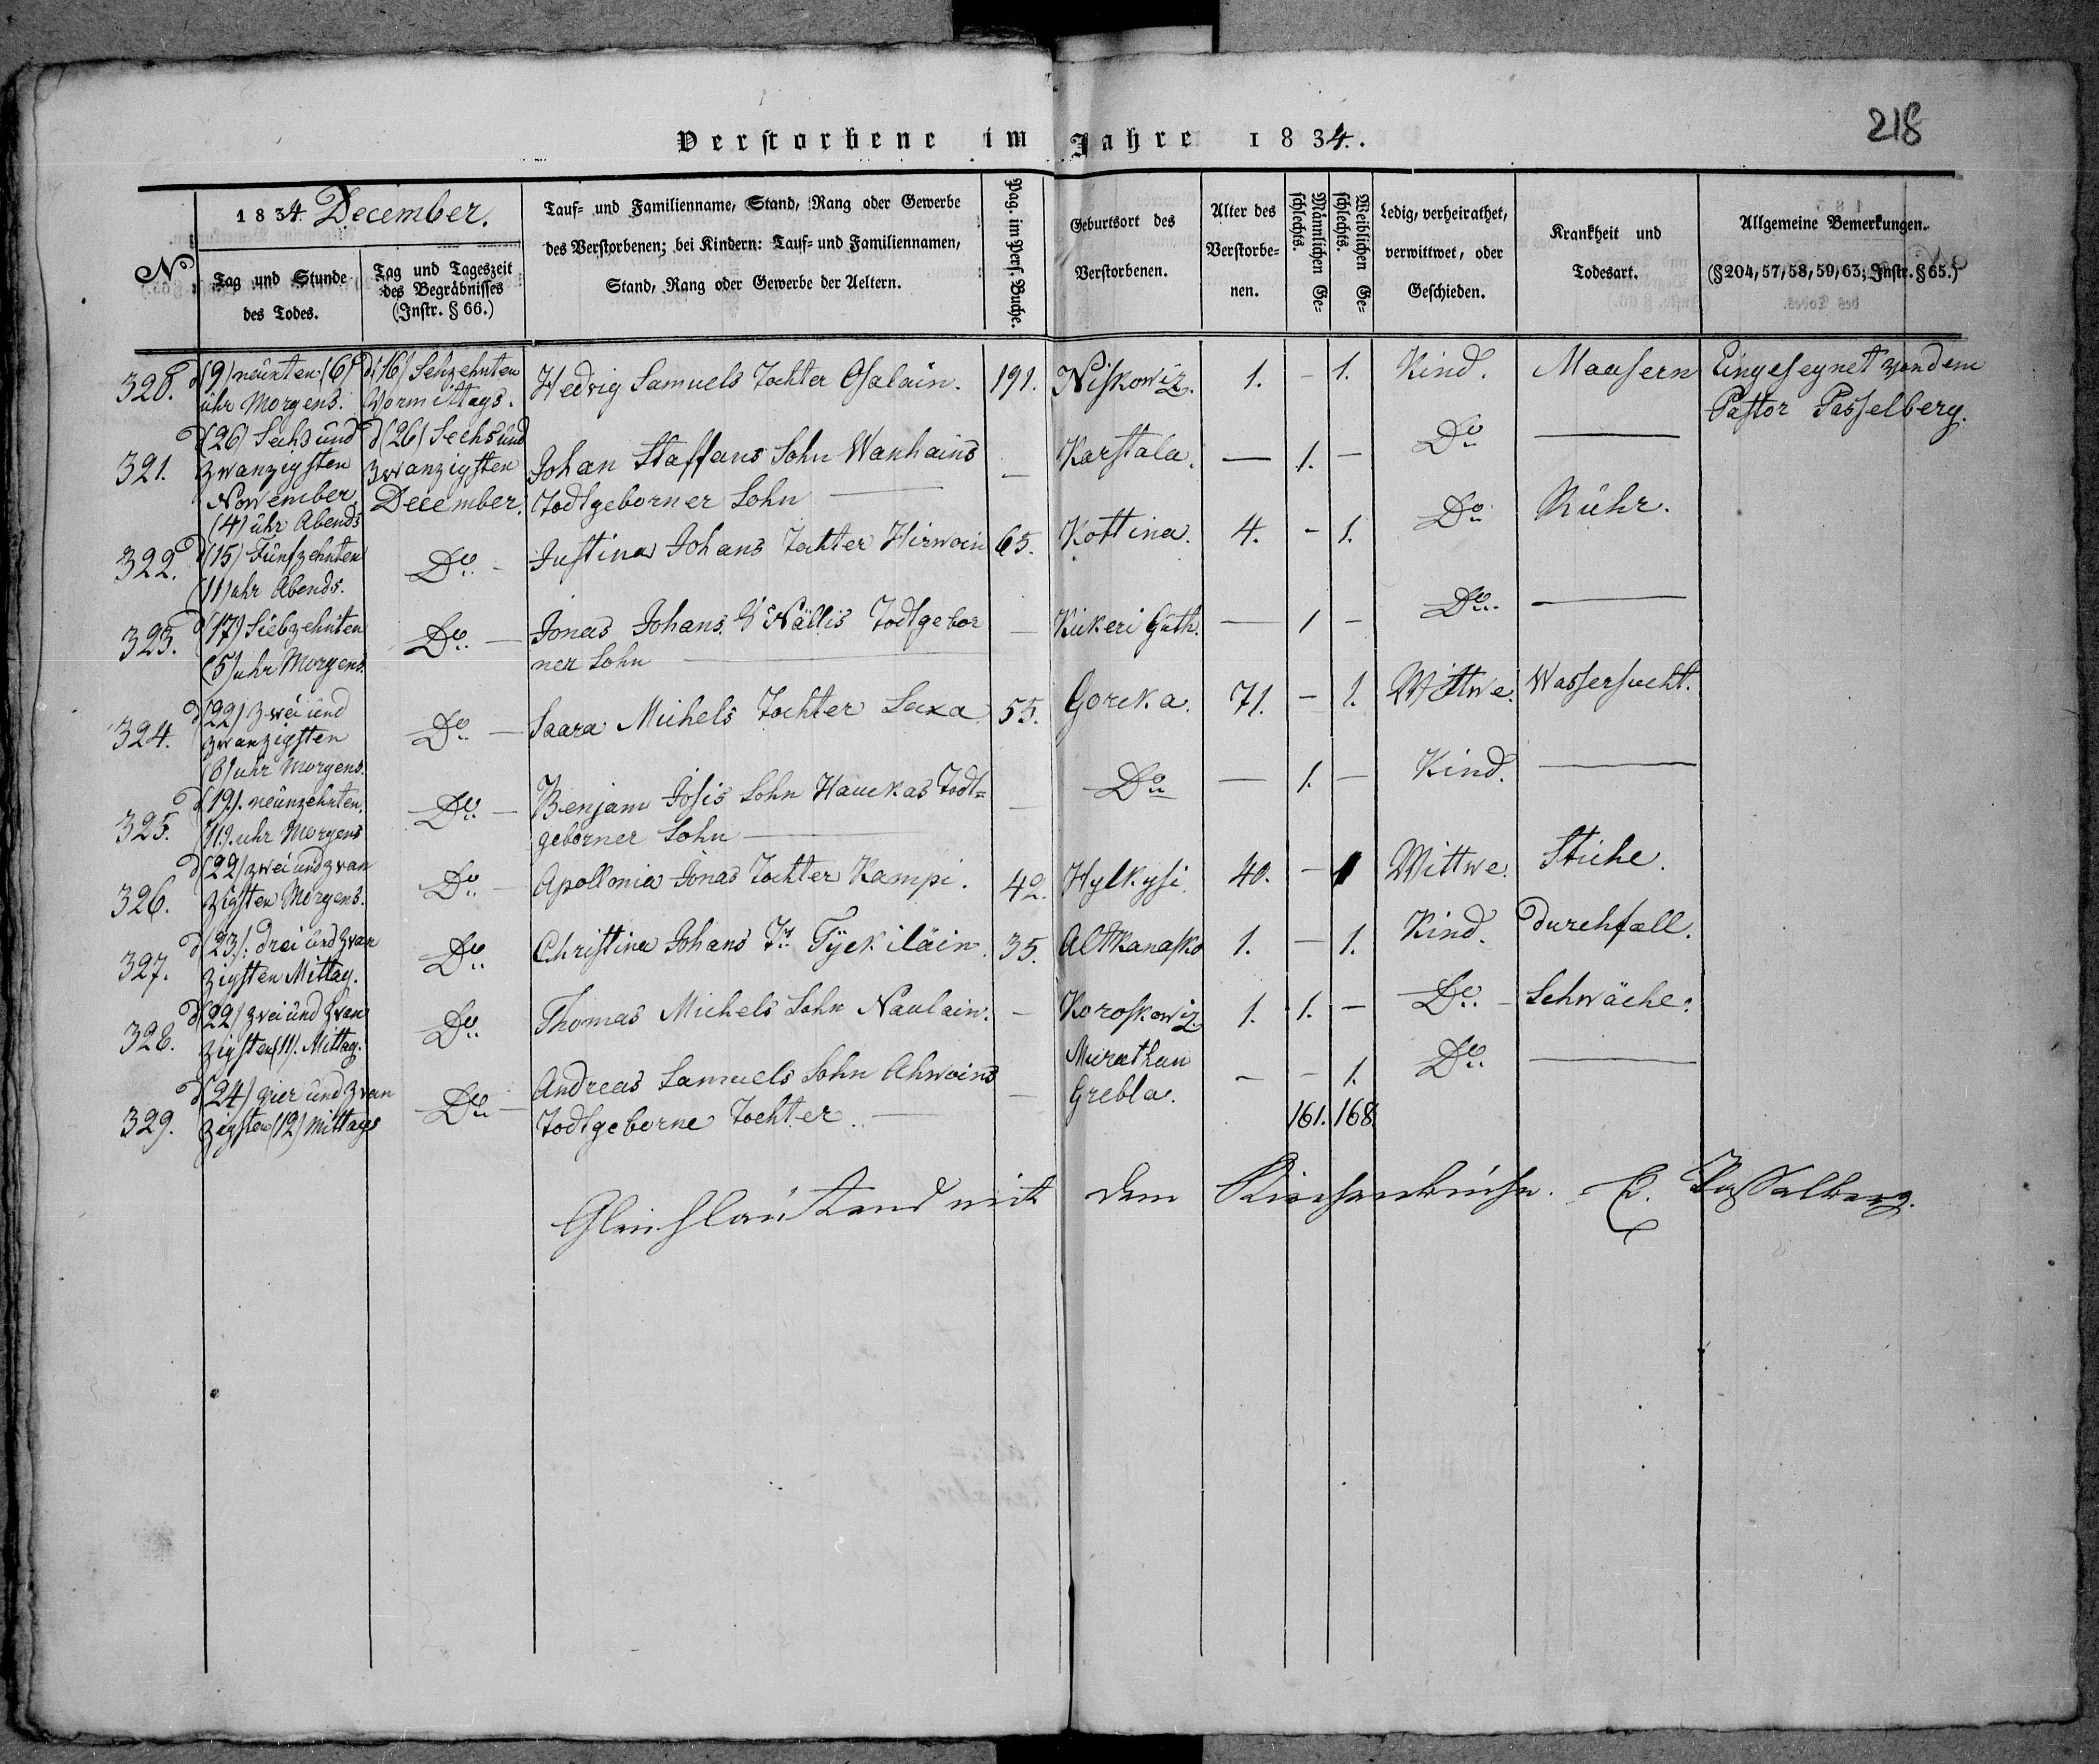 218
Verstorbene im Jahre 1834.
No
1834. December.
Tag und Stunde des Todes.
Tag und Tageszeit des Begräbnisses (Instr. § 66.)
Tauf- und Familienname, Stand, Rang oder Gewerbe
des Verstorbenen; bei Kindern: Tauf- und Familiennamen,
Stand, Rang oder Gewerbe der Aeltern.
Pag. im Pers. Buche.
Geburtsort des Verstorbenen.
Alter des Verstorbe-nen.
Männlichen Ge-schlechts.
Weiblichen Ge-schlechts.
Ledig, verheirathet, verwittwet, oder Geschieden.
Krankheit und Todesart.
Allgemeine Bemerkungen. (§ 204, 57, 58, 59, 63; Instr. § 65.)
320. d (9) neunten (6) uhr Morgens. d (16) Sehzehnten Vormittags. Hedvig Samuels Tochter Osalain. 191. Niskowiz. 1. – 1. Kind. Maasern Eingesegnet von dem
Pastor Passelberg.
321. d (26) Sechs und zwanzigsten November (4) uhr Abends d (26) Sechs und zwanzigsten December. Johan Staffans Sohn Wanhains — Karstala. — 1. – Do —
Todtgeborner Sohn —
322. d (15) Fünfzehnten (11) uhr Abends. Do – Justina Johans Tochter Hirwoin 65. Kottina. 4. – 1. Do Rühr.
323. d (17) Siebzehnten (5) uhr Morgens. Do – Jonas Johans S. Nällis Todtgebor — Kiikeri Guth. — 1 – Do —
ner Sohn —
324. d (22) Zwei und zwanzigsten (8) uhr Morgens. Do – Saara Michels Tochter Luka 55. Gorcka. 71. – 1. Wittwe. Wassersucht.
325. d (19). neunzehnten. (11). uhr Morgens Do – Benjam Josis Sohn Hauckas Todt= — Do — 1. – Kind. —
geborner Sohn —
326. d (22) zwei und zwan zigsten Morgens. Do – Apollonia Jonas Tochter Kampi. 42. Hylkysi. 40. – 1 Wittwe. Stiche.
327. d (23). drei und zwan zigsten Mittag. Do Christina Johans Tr Tyckiläin. 35. Altkanasko 1. – 1. Kind. Durchfall.
328. d (22) Zwei und zwan zigsten (11). Mittag. Do Thomas Michels Sohn Naulain. – Koroskowiz 1. 1. – Do – Schwäche.
329. d (24) vier und zwan zigsten (12) mittags Do – Andreas Samuels Sohn Ahwoins — Murathan Grebla. – – 1. Do —
Todtgeborne Tochter. —
161. 168.
Gleichlautend mit dem Kirchenbuche. E. Passelberg.